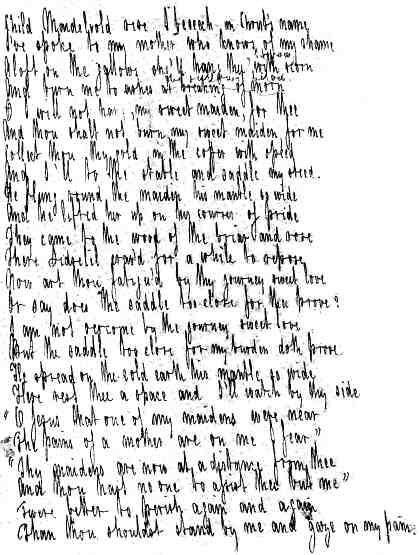 Child Maidelvold dear I beseech in Christ's name
I've spoke to my mother who knows of my shame
Aloft on the gallows she'll hang thee with scorn
And burn me to ashes at breaking of morn
I will not hang my sweet maiden for thee
And thou shalt not burn my sweet maiden for me
Collect thou thy gold in the coffer with speed
And I'll to the stable and saddle my steed.
He flung round the maiden his mantle so wide
And he lifted her up on his courser of pride
They came to the wood of the briar and rose
There Sidselil craved for a while to repose
Now art thou fatigu'd by thy journey sweet love
Or say does the saddle too close for thee prove?
I am not o'ercome by the journey sweet love
But the saddle too close for my burden doth prove.
He spread on the cold earth his mantle so wide
Here rest thee a space and I'll watch by thy side
"O Jesus that one of my maidens were near
The pains of a mother are on me I fear"
"Thy maidens are now at a distance from thee
And thou hast no one to assist thee but me"
'Twere better to perish again and again
Than thou shouldst stand by me and gaze on my pain.